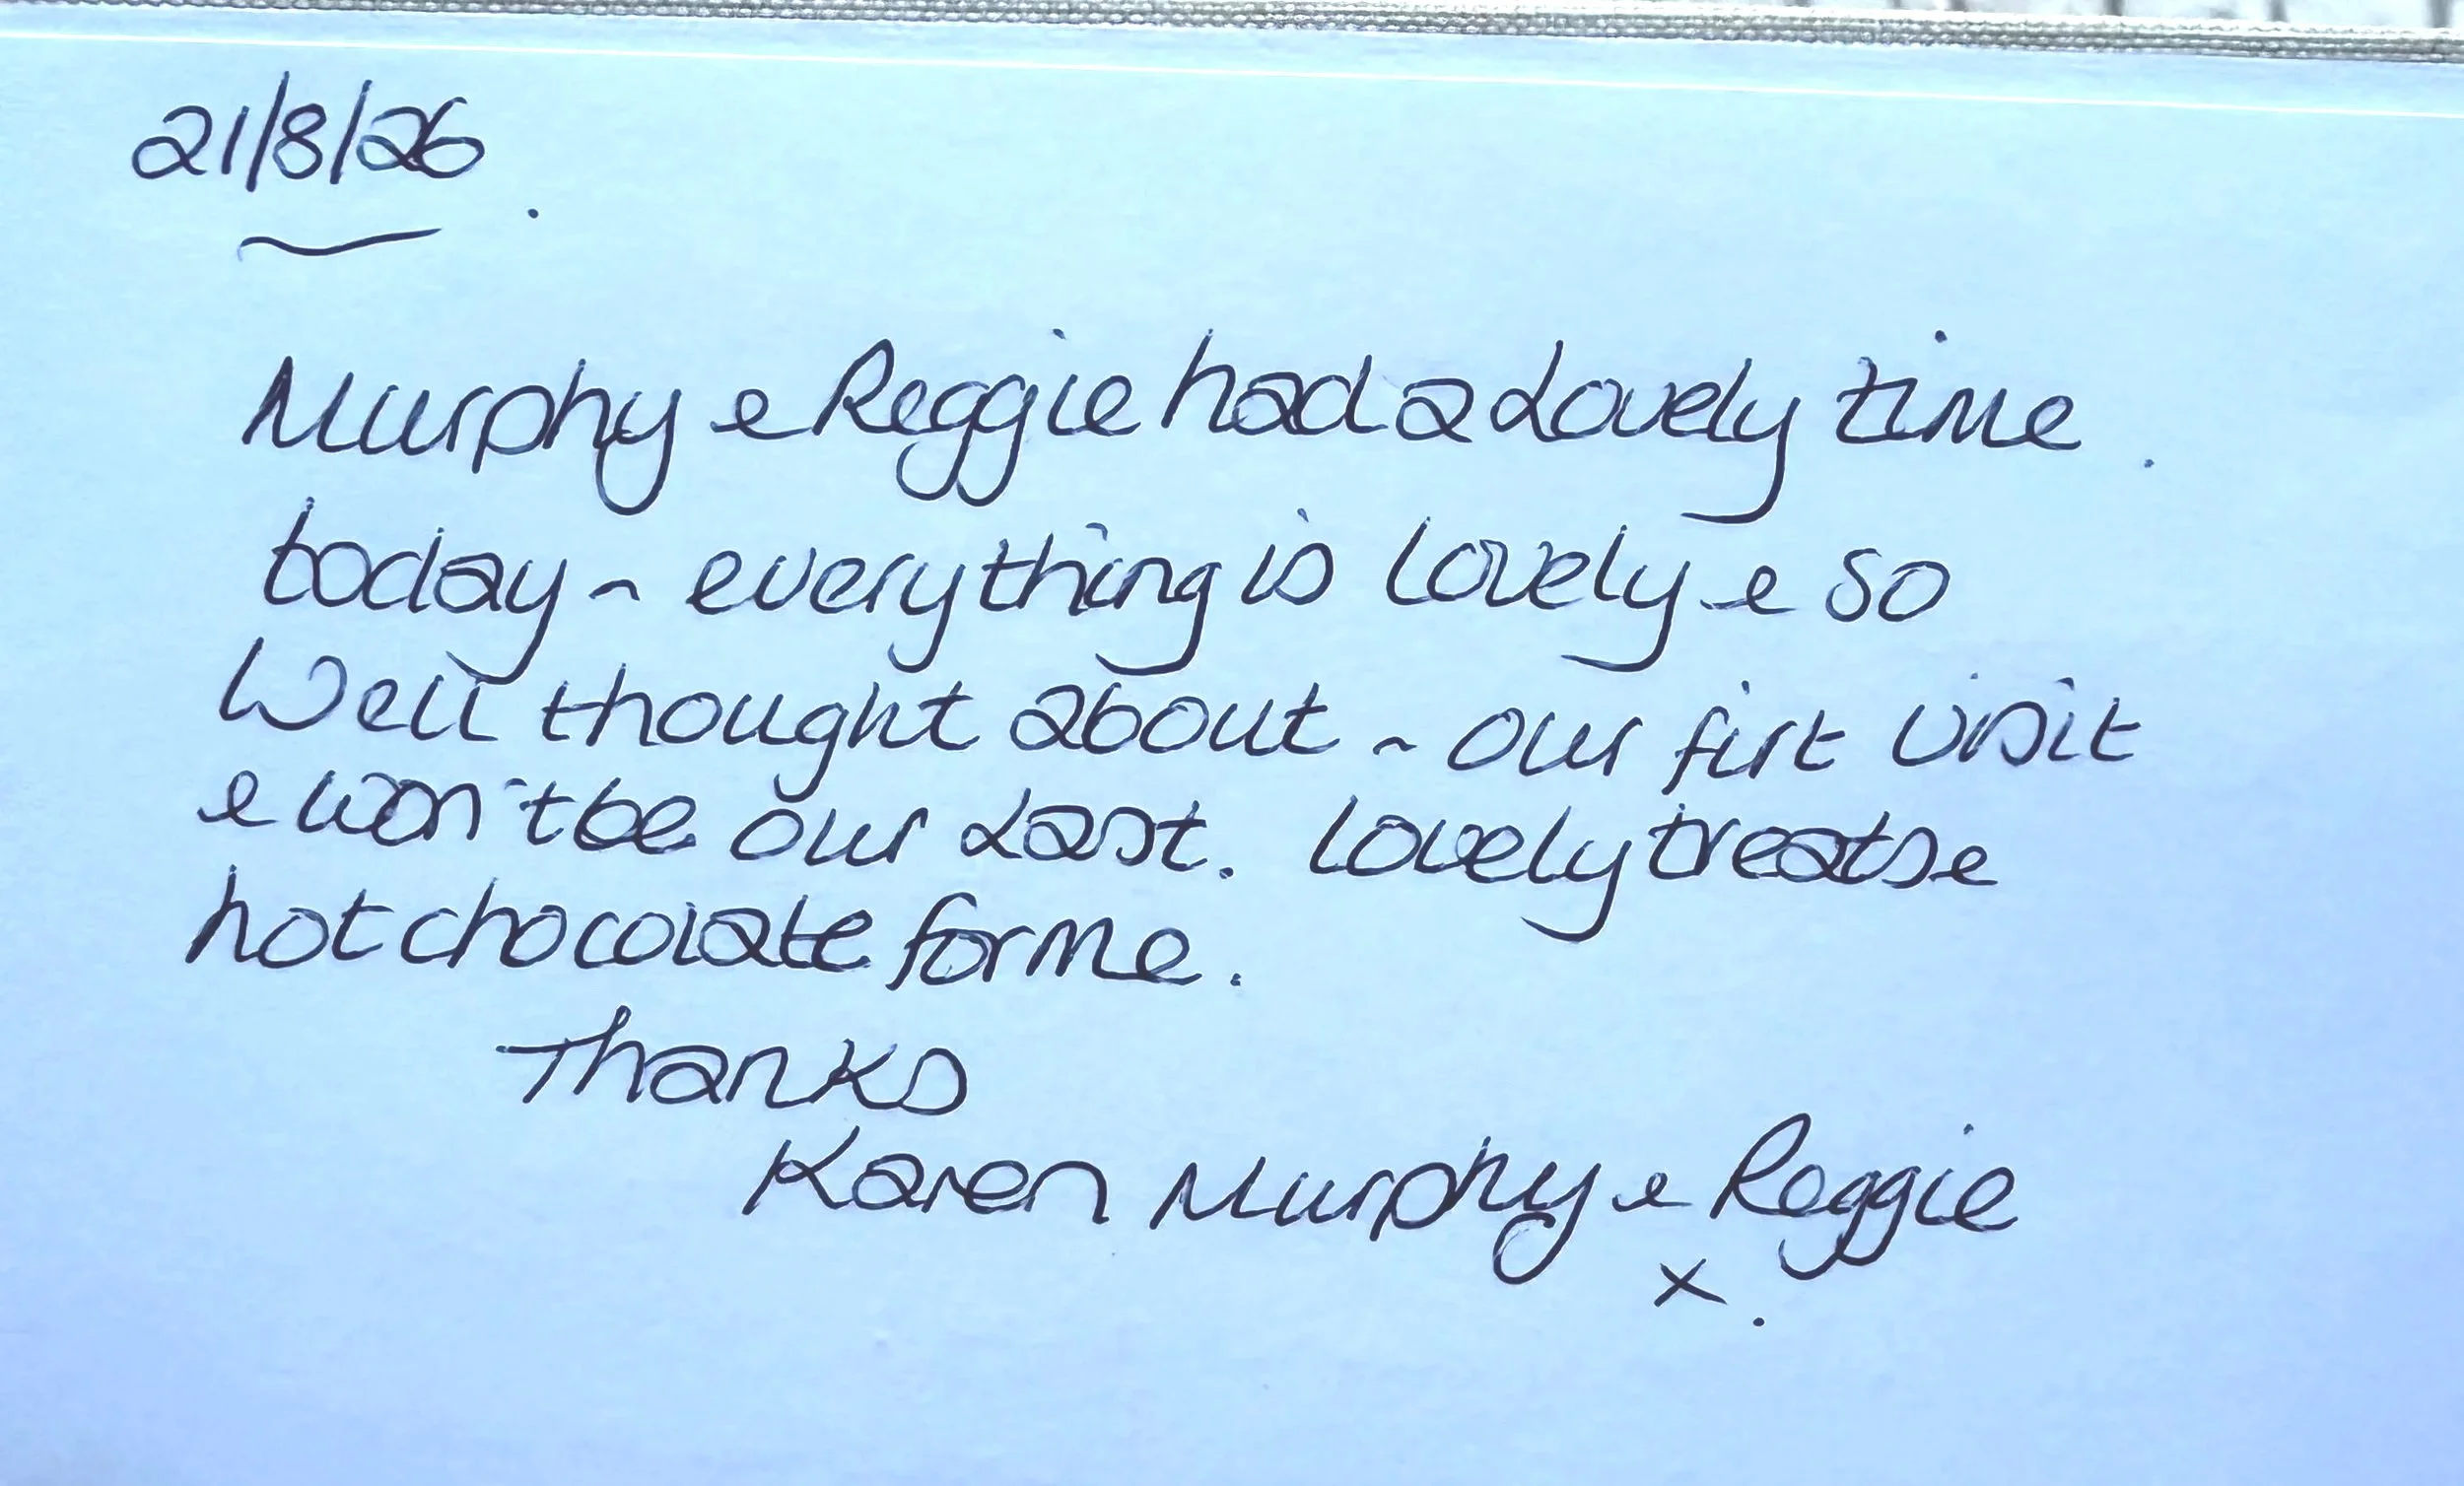 21/8/26.
Murphy & Reggie had a Lovely time.
today - everything is lovely & so
Well thought about - our first visit
& won't be our Last. Lovely treats &
hot chocolate for me.
Thanks
Karen Murphy & Reggie
x.